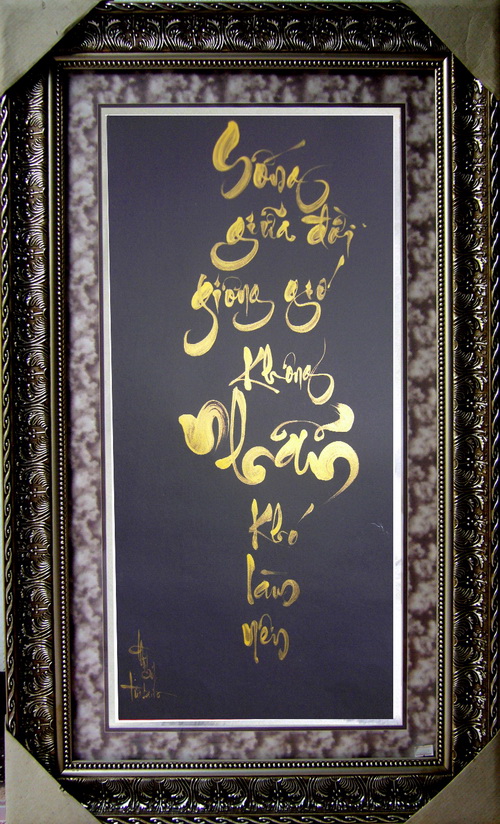 Sống
giữa đời
giông gió
Không
Nhẫn
Khó
làm
nên